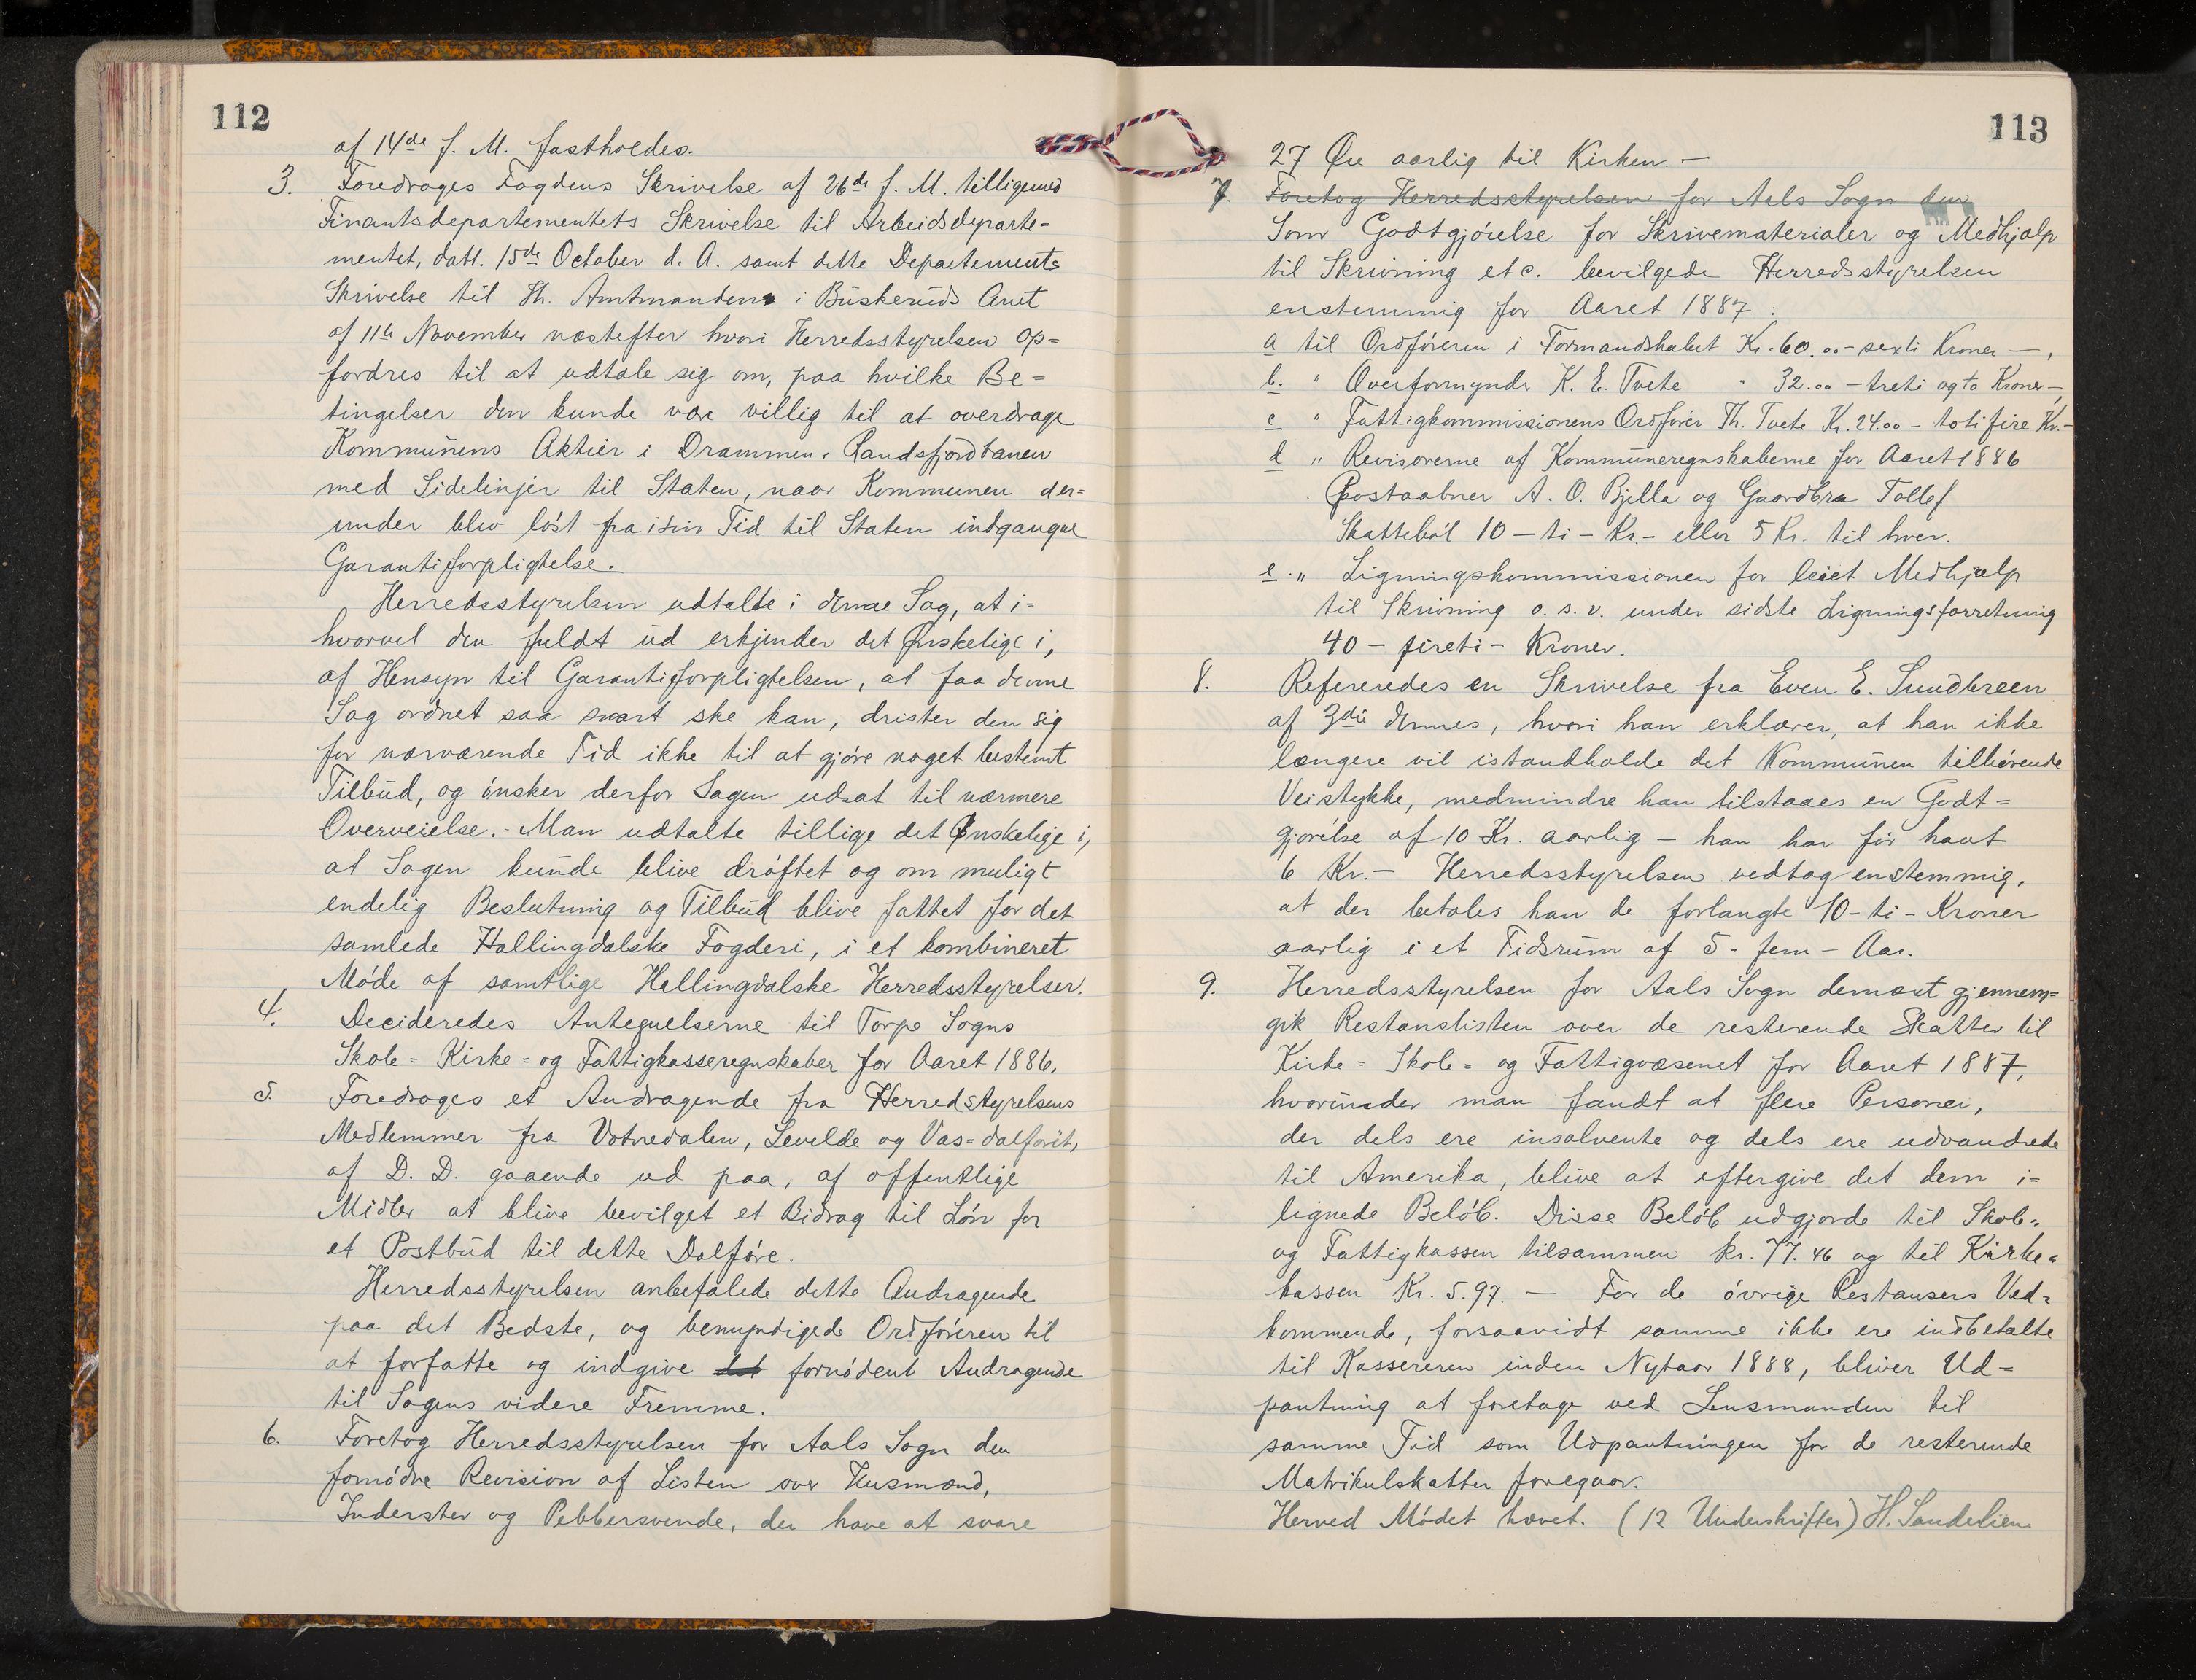 112
af 14de f. M. fastholdes.
3. Foredroges Fogdens Skrivelse af 26de f. M. tilligemed
Finantsdepartementets Skrivelse til Arbeidsdeparte-
mentet, datt. 15de October d. A. samt dette Departements
Skrivelse til Hr. Amtmanden i Buskeruds Amt
af 11te November næstefter hvori Herredsstyrelsen op=
fordres til at udtale sig om, paa hvilke Be=
tingelser den kunde være villig til at overdrage
Kommunens Aktier i Drammen-Randsfjordbanen
med Sidelinjer til Staten, naar Kommunen der=
under blev løst fra i sin Tid til Staten indgangne
Garantiforpligtelse.
Herredsstyrelsen udtalte i denne Sag, at i=
hvorvel den fuldt ud erkjender det Ønskelige i,
af Hensyn til Garantiforpligtelsen, at faa denne
Sag ordnet saa snart ske kan, drister den sig
for nærværende Tid ikke til at gjøre noget bestemt
Tilbud, og ønsker derfor Sagen udsat til nærmere
Overveielse. - Man udtalte tillige det Ønskelige i,
at Sagen kunde blive drøftet og om muligt
endelig Beslutning og Tilbud blive fattet for det
samlede Hallingdalske Fogderi, i et kombineret
Møde af samtlige Hallingdalske Herredsstyrelser.
4. Decideredes Antegnelserne til Torpe Sogns
Skole= Kirke= og Fattigkasseregnskaber for Aaret 1886.
5. Foredroges et Andragende fra Herredstyrelsens
Medlemmer fra Votnedalen, Levelde og Vas=dalføret,
af D. D. gaaende ud paa, af offentlige
Midler at blive bevilget et Bidrag til Løn for
et Postbud til dette Dalføre.
Herredsstyrelsen anbefalede dette Andragende
paa det Bedste, og bemyndigede Ordføreren til
at forfatte og indgive det fornødent Andragende
til Sagens videre Fremme.
6. Foretog Herredsstyrelsen for Aals Sogn den
fornødne Revision af Listen over Husmænd,
Inderster og Pebbersvende, der have at svare
113
27 Øre aarlig til Kirken. —
7. Foretog Herredsstyrelsen for Aals Sogn den
Som Godtgjørelse for Skrivematerialer og Medhjælp
til Skrivning etc. bevilgede Herredsstyrelsen
enstemmig for Aaret 1887 :
a til Ordføreren i Formandskabet Kr. 60.00 - sexti Kroner —,
b. " Overformynder K. E. Tvete " 32.00 - treti og to Kroner —,
c " Fattigkommissionens Ordfører Th. Tvete Kr. 24.00 - toti fire Kr. -
d " Revisorerne af Kommuneregnskaberne for Aaret 1886
Postaabner A. O. Bjella og Gaardbr. Tollef
Skattebøl 10 - ti - Kr. - eller 5 Kr. til hver.
e. " Ligningskommissionen for leiet Medhjælp
til Skrivning o. s. v. under sidste Ligningsforretning
40 - fireti - Kroner.
8. Refereredes en Skrivelse fra Even E. Sundbreen
af 3die dennes, hvori han erklærer, at han ikke
længere vil istandholde det Kommunen tilhørende
Veistykke, medmindre han tilstaaes en Godt=
gjørelse af 10 Kr. aarlig - han har før havt
6 Kr. - Herredsstyrelsen vedtog enstemmig,
at der betales han de forlangte 10 - ti - Kroner
aarlig i et Tidsrum af 5 - fem - Aar.
9. Herredsstyrelsen for Aals Sogn dernæst gjennem=
gik Restanslisten over de resterende Skatter til
Kirke= Skole= og Fattigvæsenet for Aaret 1887,
hvorunder man fandt at flere Personer,
der dels ere insolvente og dels ere udvandrede
til Amerika, blive at eftergive det dem i=
lignede Beløb. Disse Beløb udgjorde til Skole=
og Fattigkassen tilsammen kr. 77.46 og til Kirke=
kassen Kr. 5.97. — For de øvrige Restansers Ved=
kommende, forsaavidt samme ikke ere indbetalte
til Kassereren inden Nytaar 1888, bliver Ud=
pantning at foretage ved Lensmanden til
samme Tid som Udpantningen for de resterende
Matrikulskatter foregaar.
Herved Mødet hævet. (12 Underskrifter) H. Sandelien